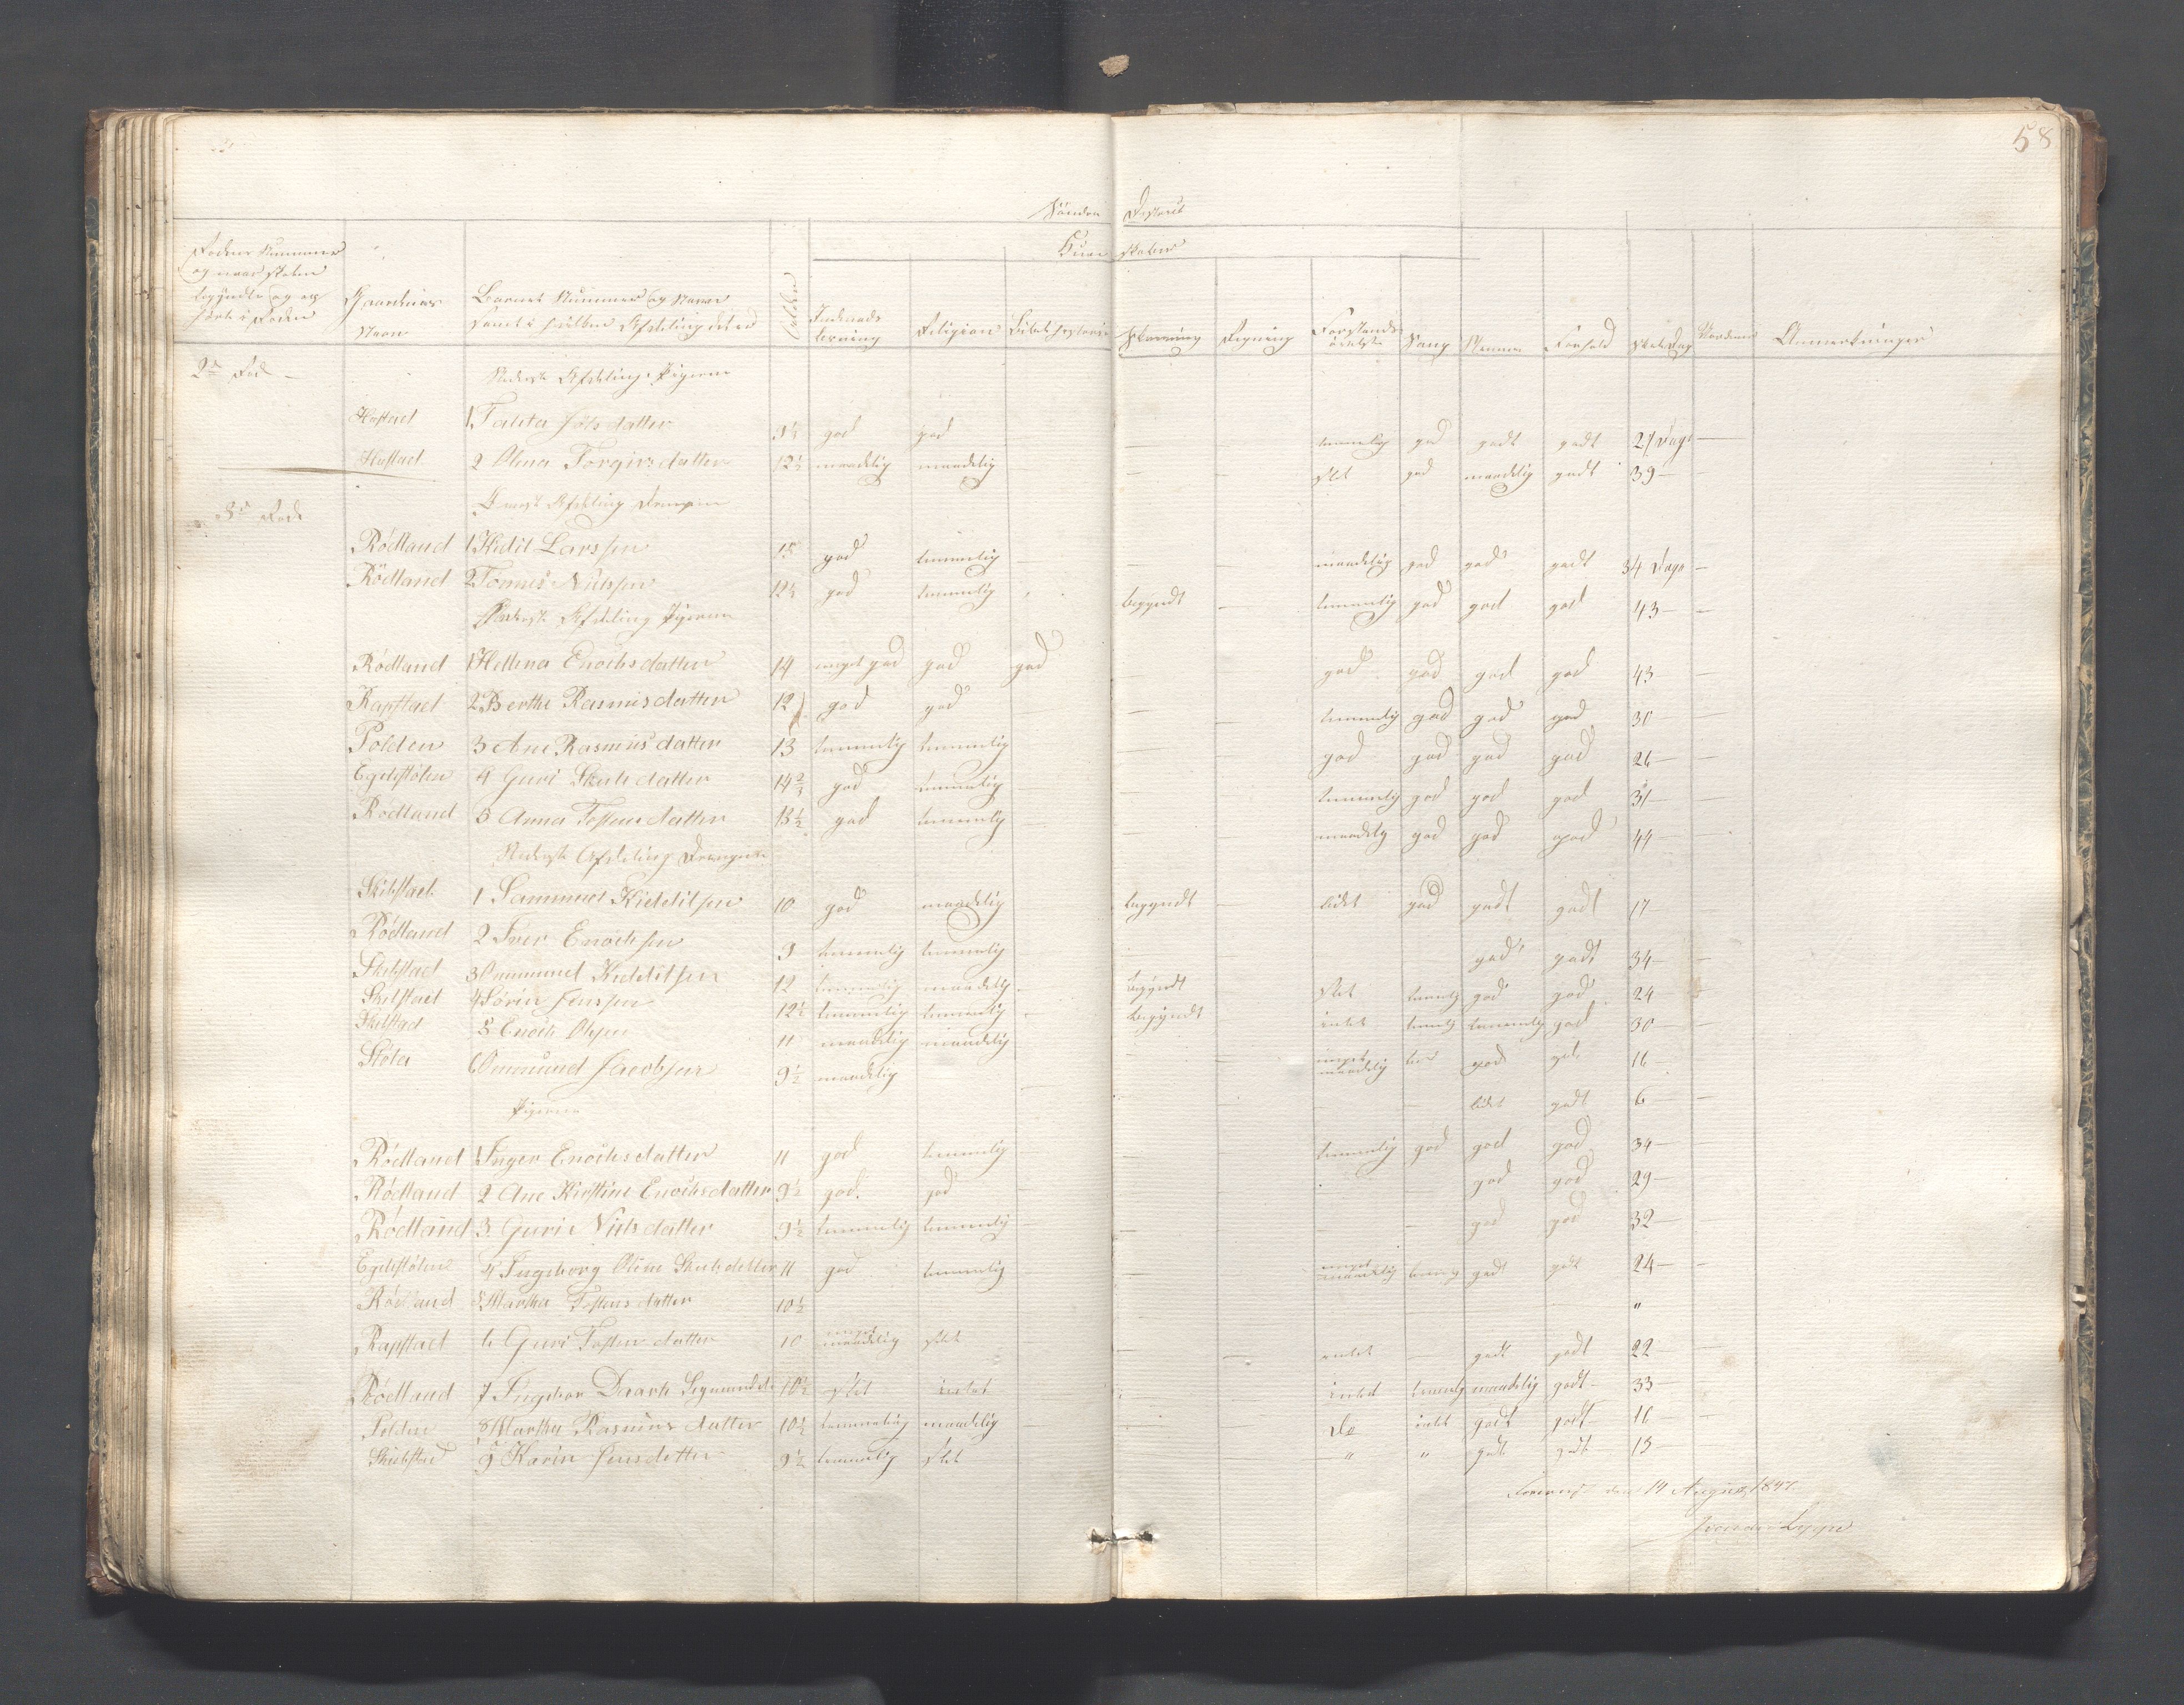 58
Søndre District
Kund skaber
Rodens Nummer
og naar Skolen
begyndte og op
hørte i Roden
Gaardenes
Navn
Barnets Nummer og Navn
samt i hvilken Afdeling det er
Alder
Indenads
læsning
Religion
Bibelhistorie
Skrivning
Regning
Forstands
øvelse
Sang
Nemme
Forhold
SkoleDag
Anmærkninger
2den Rode
Nederste Afdeling Pigerne
Hustad 1 Talita Jolsdatter 9½ god god temmelig god godt godt 27 Dage
Hustad 2 Olena Torgirsdatter 12½ maadelig maadelig slet god maadelig godt 39
3die Rode
Øverste Afdeling Drengene
Rödland 1 Kidil Larssen 15 god temmelig maadelig god god godt 34 Dage
Rödland 2 Tonnes Nilssen 12½ god temmelig begyndt temmelig god god god 43
Øverste Afdeling Pigerne
Rödland 1 Hellena Enochsdatter 14 meget god god god god god god god 43
Rapstad 2 Berthe Rasmusdatter 12 god god temmelig god god god 30
Polden 3 Ane Rasmusdatter 13 temmelig temmelig god god god god 26
Egelstølen 4 Guri Skulesdatter 14¾ god temmelig temmelig god god god 31
Rödland 5 Anna Tostensdatter 13½ god temmelig maadelig god god god 44
Nederste Afdeling Drengene
Skibstad 1 Sammuel Kiddilsen 10 god maadelig begyndt lidet god godt godt 17
Rödland 2 Iver Enochsen 9 temmelig temmelig godt godt 34
Skibstad 3 Ommund Kiddilsen 12 temmelig maadelig begyndt slet temmelig god god 24
Skibstad 4 Sörin Jenssen 12½ temmelig temmelig begyndt intet temmelig temmelig god 30
Skibstad 5 Enoch Olsen 11 maadelig maadelig meget maadelig god god 16
Støla 6 Ommund Jacobsen 9½ maadelig lidet godt 6
Pigerne
Rödland 1 Inger Enochsdatter 11 god temmelig temmelig god god god 34
Rödland 2 Ane Kirstine Enochsdatter 9½ god god god god 29
Rödland 3 Guri Nilsdatter 9½ temmelig temmelig god god 32
Egelstølen 4 Ingeborg Oline Skulesdatter 11 god temmelig meget maadelig godt godt 24
Rödland 5 Martha Tostensdatter 10½ "
Rapstad 6 Guri Tostensdatter 10 meget maadelig slet intet godt godt 22
Rödland 7 10½ slet intet intet temmelig maadelig godt 33
Polden 8 Martha Rasmusdatter 10½ temmelig maadelig Do intet godt godt 16
Skibstad 9 Karin Jensdatter 9½ temmelig slet " " godt godt 13
den 14 August 1847